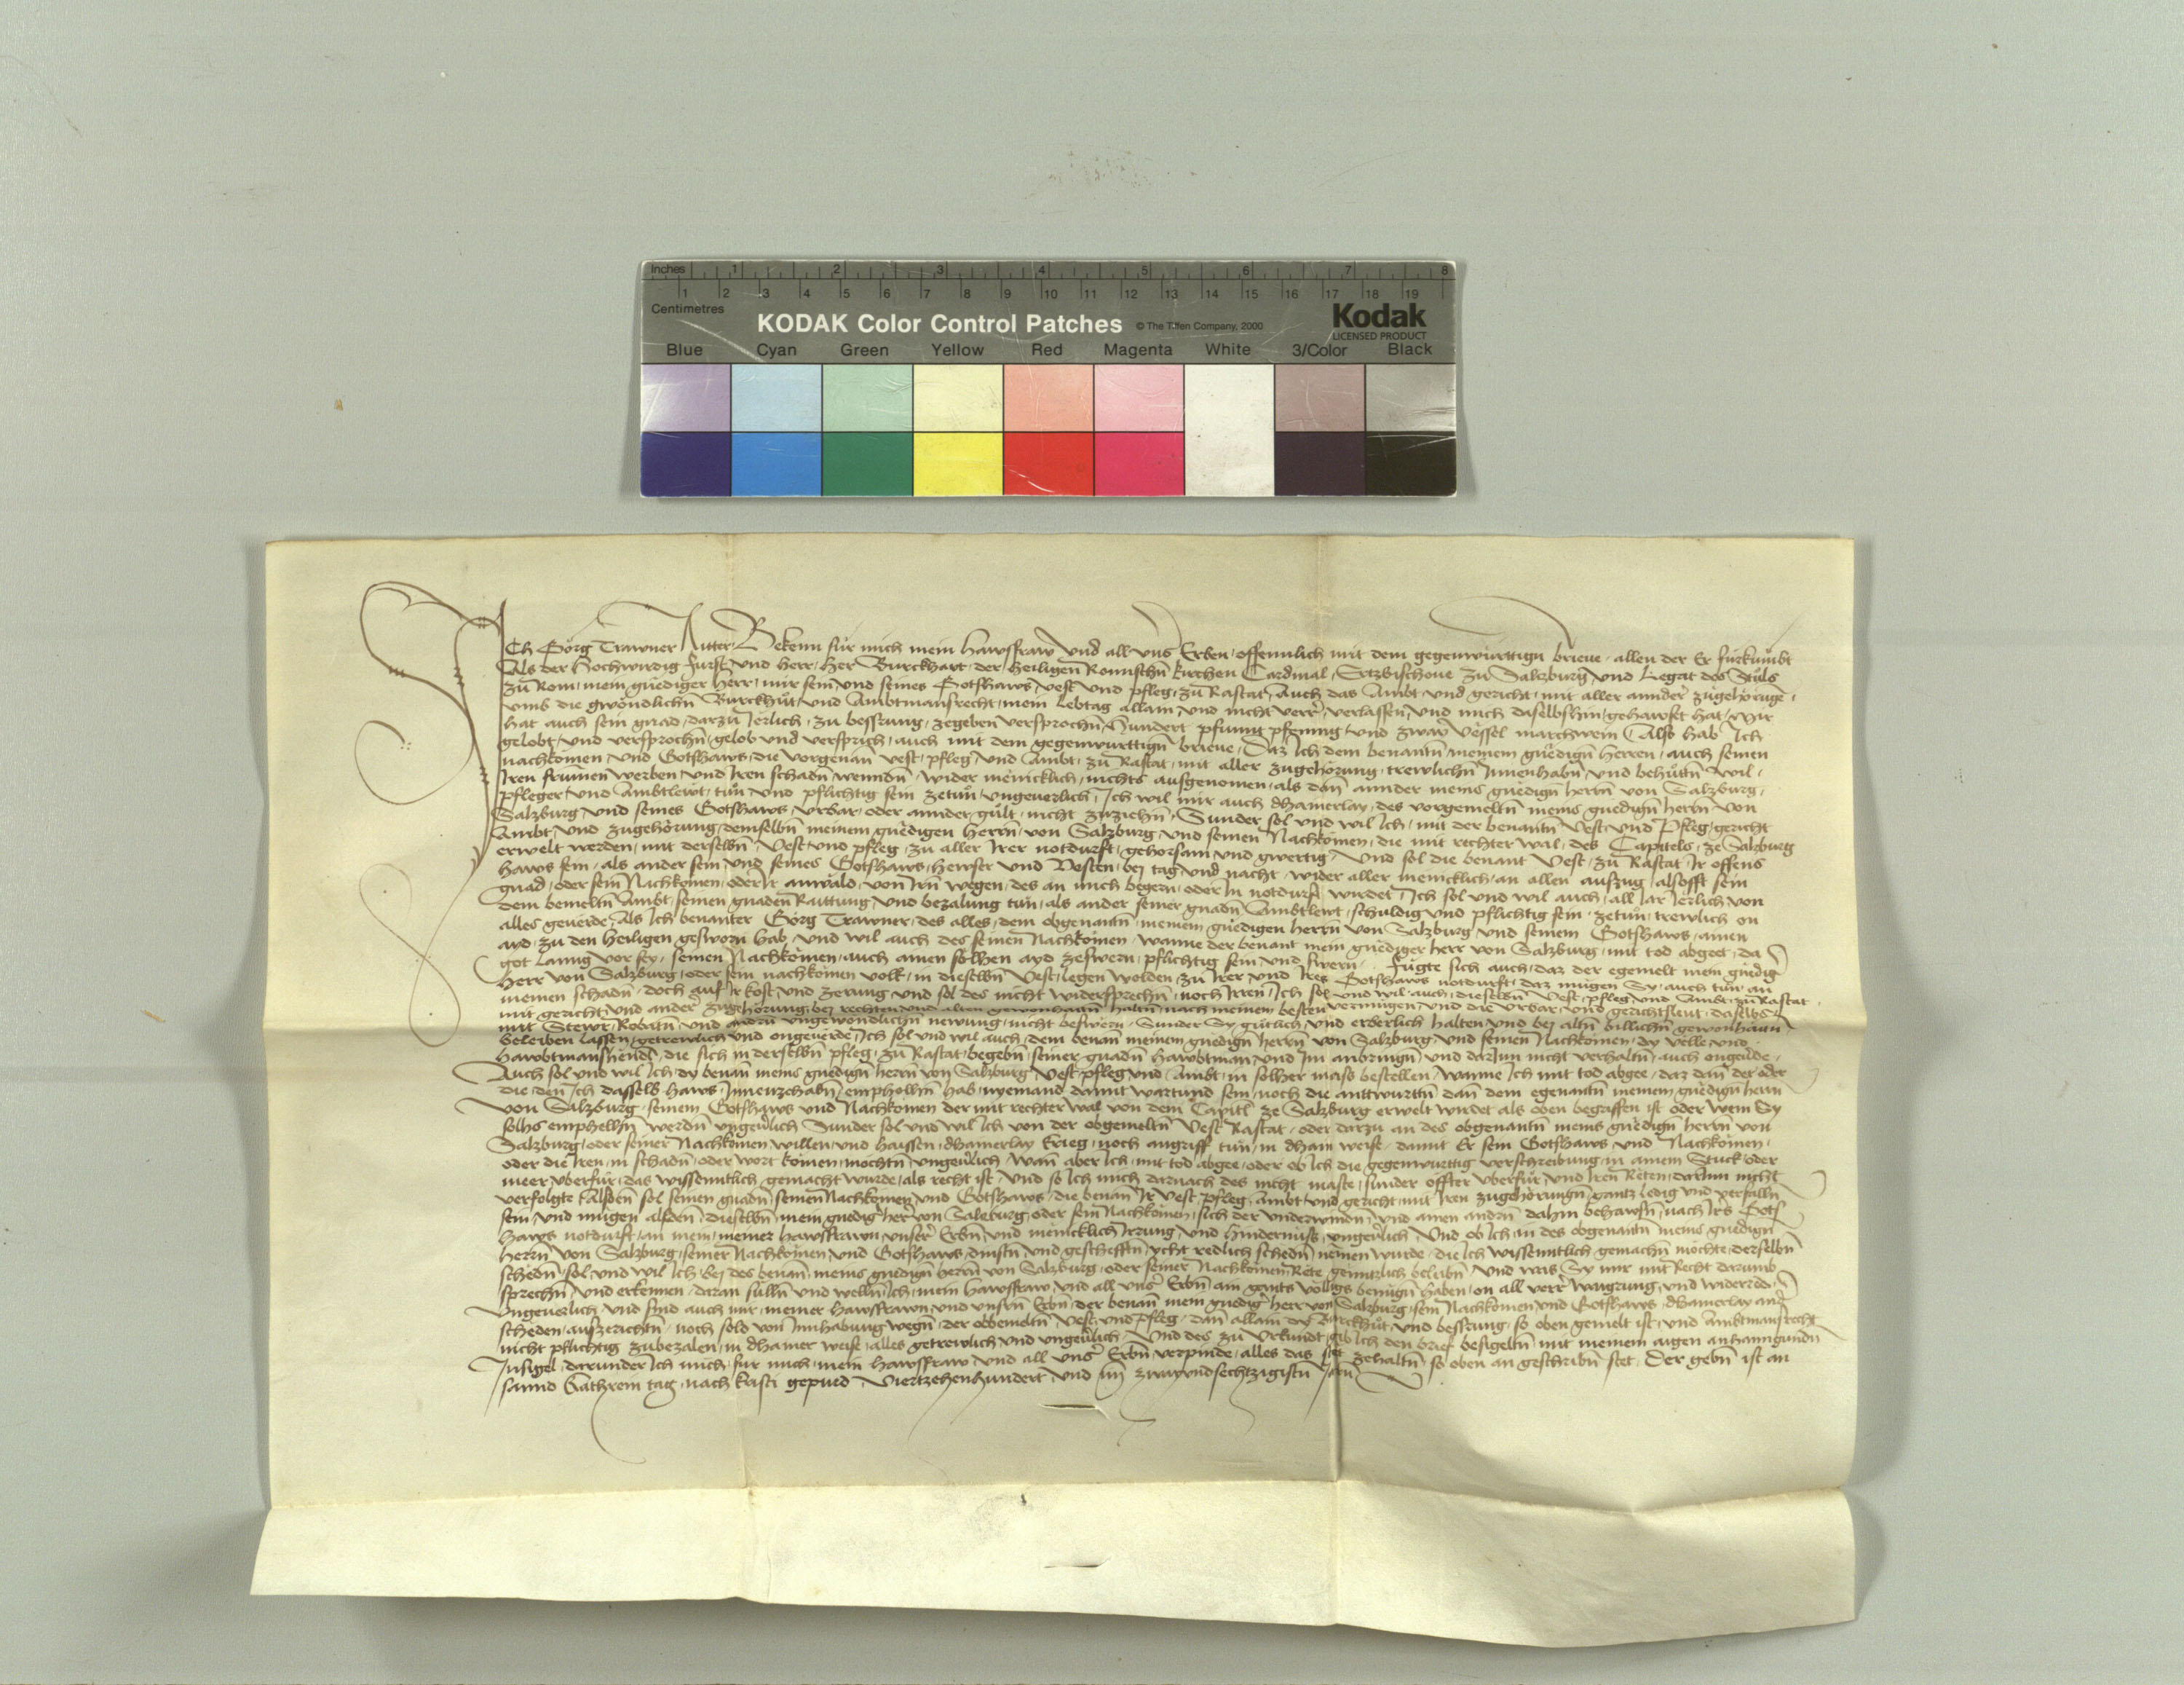 Inches 1 2 3 4 5 6 7 8
1 2 3 4 5 6 7 8 9 10 11 12 13 14 15 16 17 18 19
Centimetres
KODAK Color Control Patches © The Tiffen Company, 2000 Kodak
LICENSED PRODUCT
Blue Cyan Green Yellow Red Magenta White 3/Color Black
ICh Görg Trawner Ritter Bekenn für mich mein hawsfraw vnd all vnser Erben offennlich mit dem gegenwürttign brieue allen den Er fürkumbt
Als der Hochwirdig fürst vnd herr her Burckhart der heiligen Romischn kirchen Cardinal Ertzbischoue zu Salzburg vnd Legat des Stuls
zu Rom mein gnediger herr mir sein vnd seines Gotshaws vest vnd pfleg zu Rastat Auch das Ambt vnd gericht mit aller annder zugehorung
vmb die gwöndlichn Burckhut vnd Ambtmansrecht mein Lebtag allain vnd nicht verrer verlassen vnd mich daselbshin gehawset hat Mir
hat auch sein gnad darzu Jerlich zu bessrung zegeben versprochn Hundert pfunnt pfennig vnd zway vessel marchwein Also hab Ich
gelobt vnd versprochn gelob vnd versprich auch mit dem gegenwurttign brieue Daz Ich dem benantn meinem gnedign herren auch seinen
nachkomen vnd Gotshaws die vorgenan vest pfleg vnd Ambt zu Rastat mit aller zugehorung trewlichn Innenhabn vnd behutn wil
Iren frumen werben vnd Iren schadn wenndn wider menicklich nichts ausgenomen als dan annder meins gnedign herrn von Salzburg
pfleger vnd Ambtlewt tun vnd pflichtig sein zetun vngeuerlich Ich wil mir auch dhainerlay des vorgemeltn meins gnedign herrn von
Salzburg vnd seines Gotshaws vrbar oder annder gult nicht zuziehn Sunder sol vnd wil Ich mit der benantn Vest vnd Pfleg gericht
Ambt vnd zugehörung demselbn meinem gnedigen herrn von Salzburg vnd seinen Nachkomen die mit rechter wal des Capitels ze Salzburg
erwelt werden mit derselbn Vest vnd pfleg zu aller Irer notdurft gehorsam vnd gwertig vnd sol die benant Vest zu Rastat Ir offens
haws sein als ander sein vnd seines Gotshaws hewser vnd Vesten bei tag vnd nacht wider aller menicklich an allen aufzug alsofft sein
gnad oder sein Nachkomen oder Ir anwald von Irn wegen des an mich begern oder In notdurft wirdet Ich sol vnd wil auch all Jar Jerlich von
dem bemeltn Ambt seinen gnaden Raittung vnd bezalung tun als ander seiner gnadn Ambtlewt schuldig vnd pflichtig sein zetun trewlich on
alles geuerde Als Ich benanter Görg Trawner des alles dem obgenantn meinem gnedigen herrn von Salzburg vnd seinem Gotshaws ainen
ayd zu den heiligen gesworn hab vnd wil auch des seinen Nachkomen wanne der benant mein gnediger herr von Salzburg mit tod abgeet da
got lanng vor sey seinen Nachkomen auch ainen solhen ayd zeswern pflichtig sein vnd swern fügte sich auch daz der egemelt mein gnedig
herr von Salzburg oder sein nachkomen volk in dieselbn Vest legen wolden zu Irer vnd Ires Gotshaws notdurft daz mugen Sy auch tun an
meinen schadn doch auf Ir kost vnd zerung vnd sol des nicht widersprechn noch Irren Ich sol vnd wil auch dieselbn Vest pfleg vnd Ambt zu Rastat
mit gericht vnd ander zugehorung bei rechten vnd alten gewonhaitn haltn nach meinem besten vermugen vnd die vrbar vnd gerichtsleut daselbs
mit Stewr Robatn vnd andrn vngewondlichn newung nicht beswern Sunder Sy gutlich vnd erberlich halten vnd bei altn billichn gewonhaitn
beleiben lassen getrewlich vnd ongeuerde Ich sol vnd wil auch dem benan meinem gnedign herrn von Salzburg vnd seinen Nachkomen dy velle vnd
hawbtmanshendl die sich in derselbn pfleg zu Rastat begebn seiner gnadn hawbtman vnd Im anbringn vnd darInn nicht verhaltn auch ongeuerde
Auch sol vnd wil Ich dy benan meins gnedign herrn von Salzburg Vest pfleg vnd Ambt in solher mass bestellen wanne Ich mit tod abgee daz dan der oder
die den Ich dasselb haws Innenzehabn empholhn hab nyemand damit wartund sein noch die anttwurttn dan dem egenantn meinem gnedign herrn
von Salzburg seinem Gotshaws vnd Nachkomen der mit rechter wal von dem Capitl ze Salzburg erwelt wirdet als oben begriffen ist oder wem Sy
solhs emphelhn werdn vngeuerlich Sunder sol vnd wil Ich von der obgemeltn Vest Rastat oder darzu an des obgenantn meins gnedign herrn von
Salzburg oder seiner Nachkomen willen vnd haissen dhainerlay krieg noch angriff tun in dhain weise damit Er sein Gotshaws vnd Nachkomen
oder die Iren in schadn oder wort komen mochtn vngeuerlich Wan aber Ich mit tod abgee oder ob Ich die gegenwurttig verschreibung in ainem Stuck oder
meer vberfür das wissenntlich gemacht wurde als recht ist vnd so Ich mich darnach des nicht maste sunder offter vberfür vnd Iren Reten darInn nicht
verfolgte Alsden sol seinen gnadn seinen Nachkomen vnd Gotshaws die benan Ir vest pfleg Ambt vnd gericht mit Iren zugehorungn gantz ledig vnd verfalln
sein vnd mugen alsdenn dieselbn mein gnedig her von Salzburg oder sein Nachkomen sich der vnderwindn vnd ainen andrn dahin behawsn nach Irs Gots
haws notdurft an mein meiner hawsfrawn vnser Erbn vnd menicklich Irrung vnd hindernuss vngeuerlich Vnd ob Ich in des obgenantn meins gnedign
herrn von Salzburg seiner Nachkomen vnd Gotshaws dinstn vnd gescheftn ycht redlich schedn nemen wurde die Ich wissenntlich gemachn mochte derselbn
schedn sol vnd wil Ich bei des benan meins gnedign herrn von Salzburg oder seiner Nachkomen Rete genntzlich beleibn vnd was Sy mir mit Recht darumb
sprechn vnd erkennen daran sulln vnd welln Ich mein hawsfraw vnd all vnser Erbn ain gants völligs benügn haben on all verr waigrung vnd widerred
Vngeuerlich vnd sind auch mir meiner hawsfrawn vnd vnsern Erbn der benan mein gnedig herr von Salzburg sein Nachkomen vnd Gotshaws dhainerlay and
scheden aufzerichtn noch sold von Innhabung wegn der obbemeltn Vest vnd Pfleg dan allain dy Burckhut vnd bessrung so oben gemelt ist vnd Ambtmansrecht
nicht pflichtig zubezalen in dhainer weise alles getrewlich vnd vngeuerlich Vnd des zu Vrkundt gib Ich den brief besigeltn mit meinem aigen anhanngundn
Insigel darunder Ich mich fur mich mein hawsfraw vnd all vnser Erbn verpinde alles das stet zehaltn so oben an geschribn stet Der gebn ist an
sannd Kathrein tag nach kristi gepurd Viertzehenhundert vnd im zwayundsechtzigistn Jarn